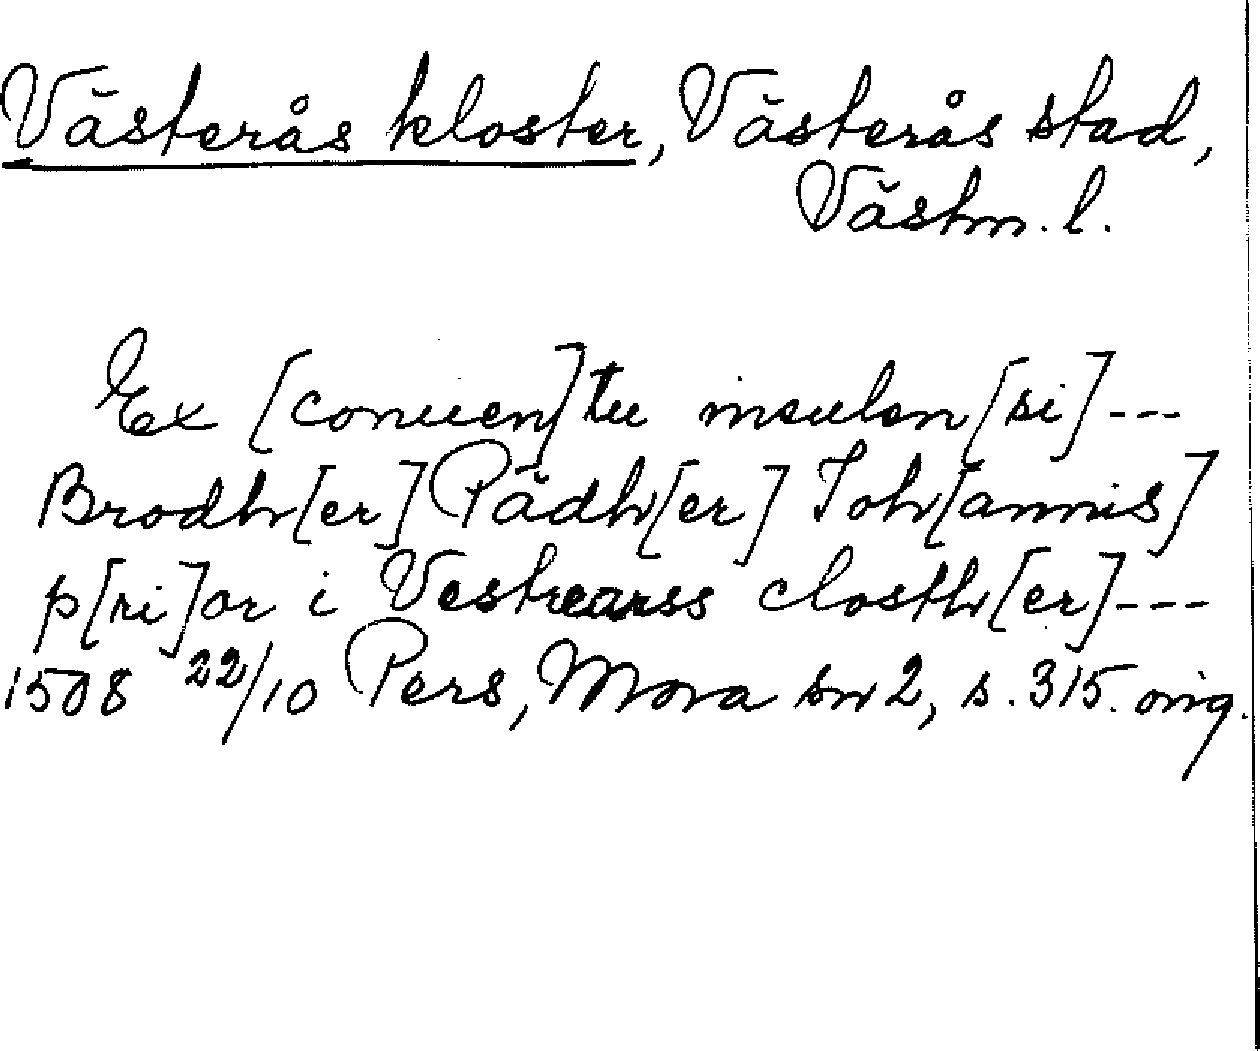 Västerås kloster, Västerås stad,
Västm. l.
Ex [conuen]tu insulen[si]---
Brodh[er] Pädh[er] Joh[annis]
p[ri]or i Vestrearss closth[er]---
1508 22/10 Pers, Mora sn 2, s. 315. orig.